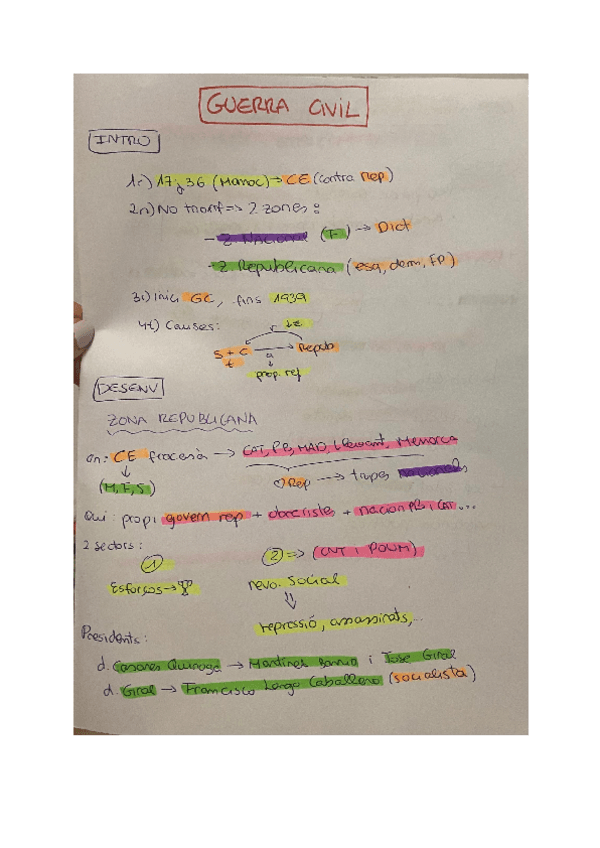 GUERRA CIVIL
INTRO
1r) 17j36 (Marroc) → CE (contra Rep)
2n) No triomf => 2 zones:
- Z. Nacional (F) → Dict
- Z. Republicana (esq, dem, FP)
3r) Inici GC, fins 1939
4t) Causes:
S + C → Repub
prop. ref
DESENV
ZONA REPUBLICANA
on: CE fracassà → CAT, PB, MAD, Llevant, Menorca
(M, F, S)
Rep → tropes nacionals
Qui: propi govern rep + obreristes + nacion PB i CAT...
2 sectors:
1
2 => (CNT i POUM)
Esforços →
revo. social
repressió, assassinats,...
Presidents:
d. Casares Quiroga → Martínez Barrio i Jose Giral
d. Giral → Francisco Largo Caballero (socialista)